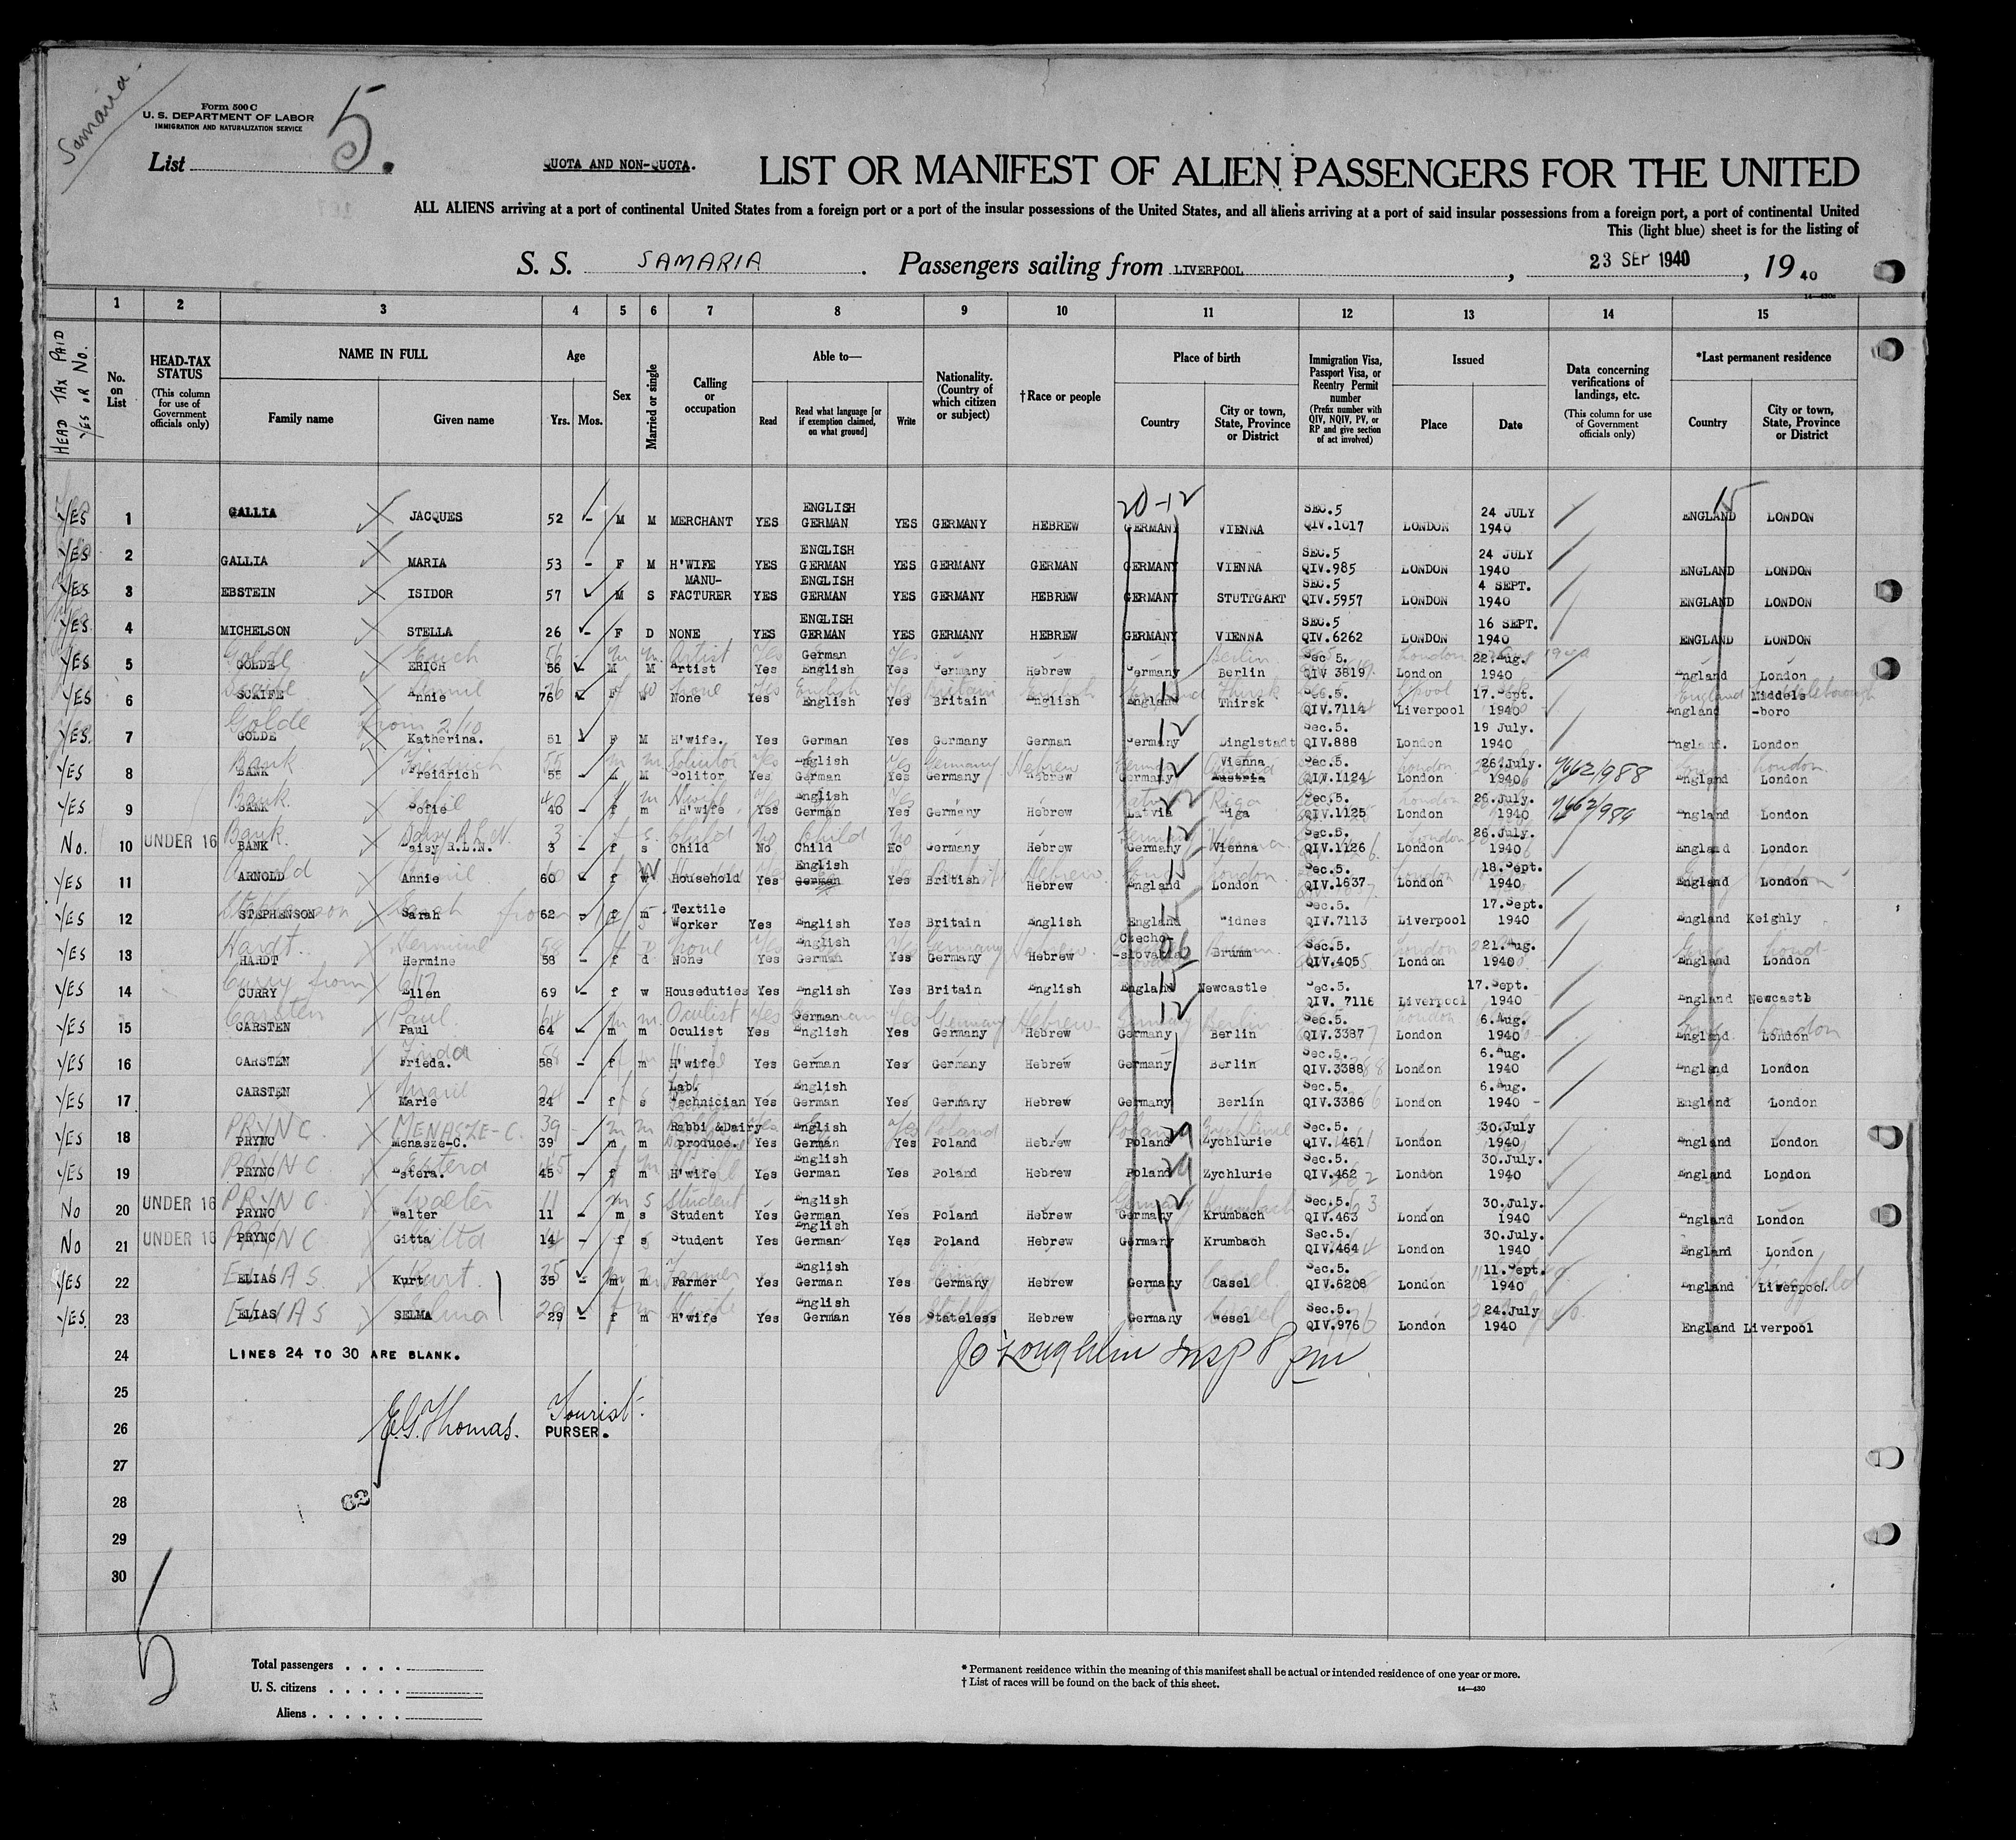 Samaria.
Form 500 C
U. S. DEPARTMENT OF LABOR
IMMIGRATION AND NATURALIZATION SERVICE
List 5.
QUOTA AND NON-QUOTA.
LIST OR MANIFEST OF ALIEN PASSENGERS FOR THE UNITED
ALL ALIENS arriving at a port of continental United States from a foreign port or a port of the insular possessions of the United States, and all aliens arriving at a port of said insular possessions from a foreign port, a port of continental United
This (light blue) sheet is for the listing of
S. S. SAMARIA. Passengers sailing from LIVERPOOL, 23 SEP 1940, 19 40
14—430c
1 2 3 4 5 6 7 8 9 10 11 12 13 14 15
HEAD TAX PAID YES OR NO.
No. on List
HEAD-TAX STATUS (This column for use of Government officials only)
NAME IN FULL Family name Given name
Age Yrs. Mos.
Sex
Married or single
Calling or occupation
Able to— Read Read what language [or if exemption claimed, on what ground] Write
Nationality. (Country of which citizen or subject)
†Race or people
Place of birth Country City or town, State, Province or District
Immigration Visa, Passport Visa, or Reentry Permit number (Prefix number with QIV, NQIV, PV, or RP and give section of act involved)
Issued Place Date
Data concerning verifications of landings, etc. (This column for use of Government officials only)
*Last permanent residence Country City or town, State, Province or District
20-12 15
YES 1 GALLIA JACQUES 52 - M M MERCHANT YES ENGLISH GERMAN YES GERMANY HEBREW GERMANY VIENNA SEC.5 QIV.1017 LONDON 24 JULY 1940 ENGLAND LONDON
YES 2 GALLIA MARIA 53 - F M H'WIFE YES ENGLISH GERMAN YES GERMANY GERMAN GERMANY VIENNA SEC.5 QIV.985 LONDON 24 JULY 1940 ENGLAND LONDON
YES 3 EBSTEIN ISIDOR 57 M S MANU-FACTURER YES ENGLISH GERMAN YES GERMANY HEBREW GERMANY STUTTGART SEC.5 QIV.5957 LONDON 4 SEPT. 1940 ENGLAND LONDON
YES. 4 MICHELSON STELLA 26 - F D NONE YES ENGLISH GERMAN YES GERMANY HEBREW GERMANY VIENNA SEC.5 QIV.6262 LONDON 16 SEPT. 1940 ENGLAND LONDON
YES 5 GOLDE ERICH 56 M M Artist Yes German English Yes Germany Hebrew Germany Berlin Sec 5. QIV 3819 London 22.Aug. 1940 England London
YES 6 SCAIFE Annie 76 F W None Yes English Yes Britain English England 15 Thirsk Sec.5. QIV.7114 Liverpool 17.Sept. 1940 England Middels-boro
YES. 7 GOLDE Katherina. 51 F M H'wife. Yes German Yes Germany German Germany 12 Linglstadt Sec.5. QIV.888 London 19 July. 1940 England. London
YES 8 BANK Freidrich 55 M M Solitor Yes English German Yes Germany Hebrew Germany 12 Vienna Austria Sec.5. QIV.1124 London 26.July. 1940 7662/988 England London
YES 9 BANK Sofie 40 - f m H'wife Yes English German Yes Germany Hebrew Latvia 22 Riga Sec.5. QIV.1125 London 26.July. 1940 7662/989 England London
No. 10 UNDER 16 BANK Daisy R.L.N. 3 - f s Child No Child No Germany Hebrew Germany 12 Vienna Sec.5. QIV.1126 London 26.July. 1940 England London
YES 11 ARNOLD Annie 60 - f W Household Yes English German Yes British Hebrew England 15 London Sec.5. QIV.1637 London 18.Sept. 1940 England London
YES 12 STEPHENSON Sarah 62 - f m Textile Worker Yes English Yes Britain English England Widnes Sec.5. QIV.7113 Liverpool 17.Sept. 1940 England Keighly
YES 13 HARDT Hermine 58 - f d None Yes English German Yes Germany Hebrew Czecho-slovakia 06 Brumm Sec.5. QIV.405 London 21.Aug. 1940 England London
YES 14 CURRY Ellen 69 - f w Houseduties Yes English Yes Britain English England 15 Newcastle Sec.5. QIV. 7116 Liverpool 17.Sept. 1940 England Newcastl
YES 15 CARSTEN Paul 64 - m m Oculist Yes German English Yes Germany Hebrew Germany 12 Berlin Sec.5. QIV.3387 London 6.Aug. 1940 England London
YES 16 CARSTEN Frieda. 58 - f m H'wife Yes German Yes Germany Hebrew Germany Berlin Sec.5. QIV.3388 London 6.Aug. 1940 England London
YES 17 CARSTEN Marie 24 - f s Lab. Technician Yes English German Yes Germany Hebrew Germany Berlin Sec.5. QIV.3386 London 6.Aug. 1940 - England London
YES 18 PRYNC Menasze-C. 39 - m m Rabbi &Dairy produce. Yes English German Yes Poland Hebrew Poland 29 Zychlurie Sec.5. QIV.461 London 30.July 1940 England London
YES 19 PRYNC Estera. 45 - f m H'wife Yes English German Yes Poland Hebrew Poland 29 Zychlurie Sec.5. QIV.462 London 30.July. 1940 England London
No 20 UNDER 16 PRYNC Walter 11 - m s Student Yes English German Yes Poland Hebrew Germany 12 Krumbach Sec.5. QIV.463 London 30.July. 1940 England London
No 21 UNDER 16 PRYNC Gitta 14 - f s Student Yes English German Yes Poland Hebrew Germany Krumbach Sec.5. QIV.464 London 30.July. 1940 England London
YES 22 ELIAS Kurt 35 - m m Farmer Yes English German Yes Germany Hebrew Germany Casel Sec.5. QIV.6208 London 11.Sept. 1940 England Liverpool.
YES. 23 ELIAS SELMA 29 - f m H'wife Yes English German Yes Stateless Hebrew Germany Wesel Sec.5. QIV.976 London 24.July 1940 England Liverpool
24 LINES 24 TO 30 ARE BLANK.
JO'Loughlin Insp 8 pm
25
26 E.G. Thomas. Tourist. PURSER.
27
28 62
29
30
5
Total passengers . . . .
U. S. citizens . . . . .
Aliens . . . . . .
* Permanent residence within the meaning of this manifest shall be actual or intended residence of one year or more.
† List of races will be found on the back of this sheet.
14—430